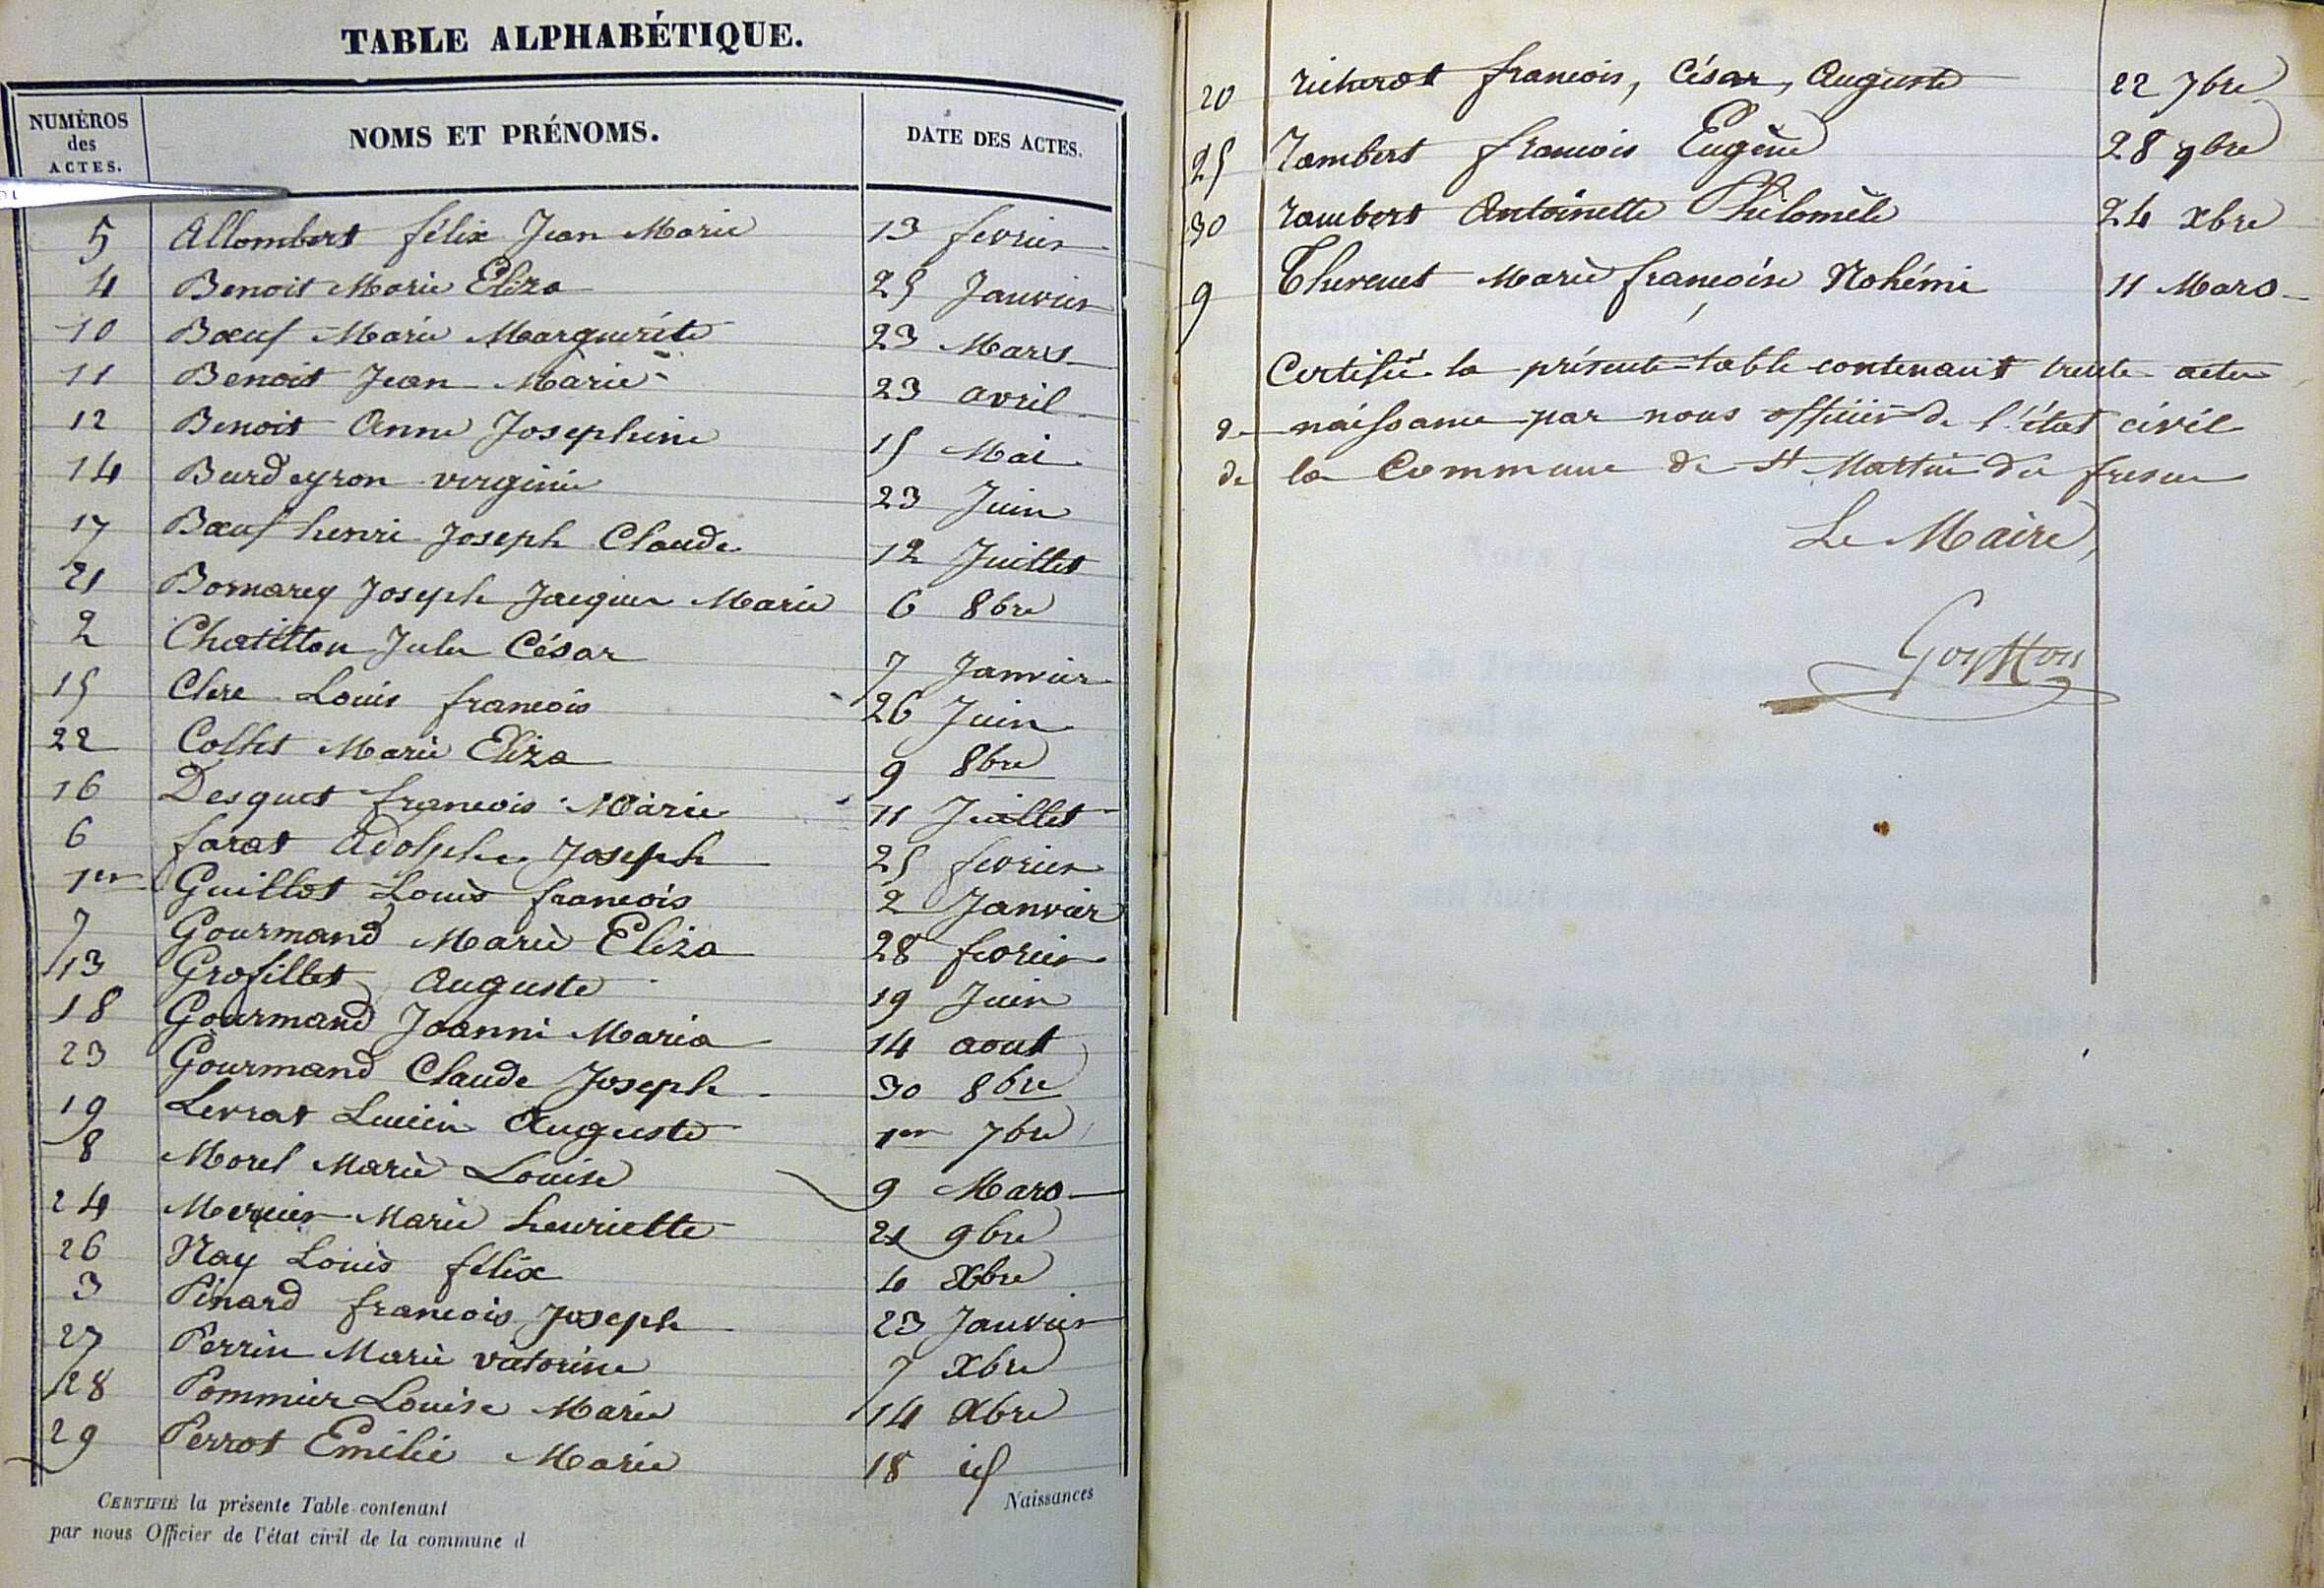 TABLE ALPHABÉTIQUE.
NUMÉROS des ACTES. NOMS ET PRÉNOMS. DATE DES ACTES.
5 Allombert félix Jean Marie 13 fevrier
4 Benoit Marie Eliza 25 Janvier
10 Bœuf Marie Marguerite 23 Mars
11 Benoit Jean Marie 23 avril
12 Benoit Anne Josephine 15 Mai
14 Burdeyron virginie 23 Juin
17 Bœuf henri Joseph Claude 12 Juillet
21 Bomarey Joseph Jacques Marie 6 8bre
2 Chatillon Jules César 7 Janvier
15 Clerc Louis francois 26 Juin
22 Collet Marie Eliza 9 8bre
16 Desquet francois Marie 11 Juillet
6 farat Adolphe Joseph 25 fevrier
1er Guillot Louis francois 2 Janvier
7 Gourmand Marie Eliza 28 fevrier
13 Grosillet Auguste 19 Juin
18 Gourmand Joanni Maria 14 aout
23 Gourmand Claude Joseph 30 8bre
19 Levrat Lucien Auguste 1er 7bre
8 Morel Marie Louise 9 Mars
24 Mercier Marie henriette 21 9bre
26 Nay Louis félix 4 Xbre
3 Pinard francois Joseph 23 Janvier
27 Perrin Marie victorine 7 Xbre
28 Pommier Louise Marie 14 Xbre
29 Perrot Emélie Marie 18 id
CERTIFIÉ la présente Table contenant Naissances
par nous Officier de l'état civil de la commune d
20 richerot francois, César, Auguste 22 7bre
25 rambert francois Eugène 28 9bre
30 rambert Antoinette Philomèle 24 xbre
9 Thevenet Marie françoise Nohémi 11 Mars
Certifié la présente table contenant trente actes
de naissance par nous officier de l'état civil
de la Commune de St Martin du fresne
Le Maire,